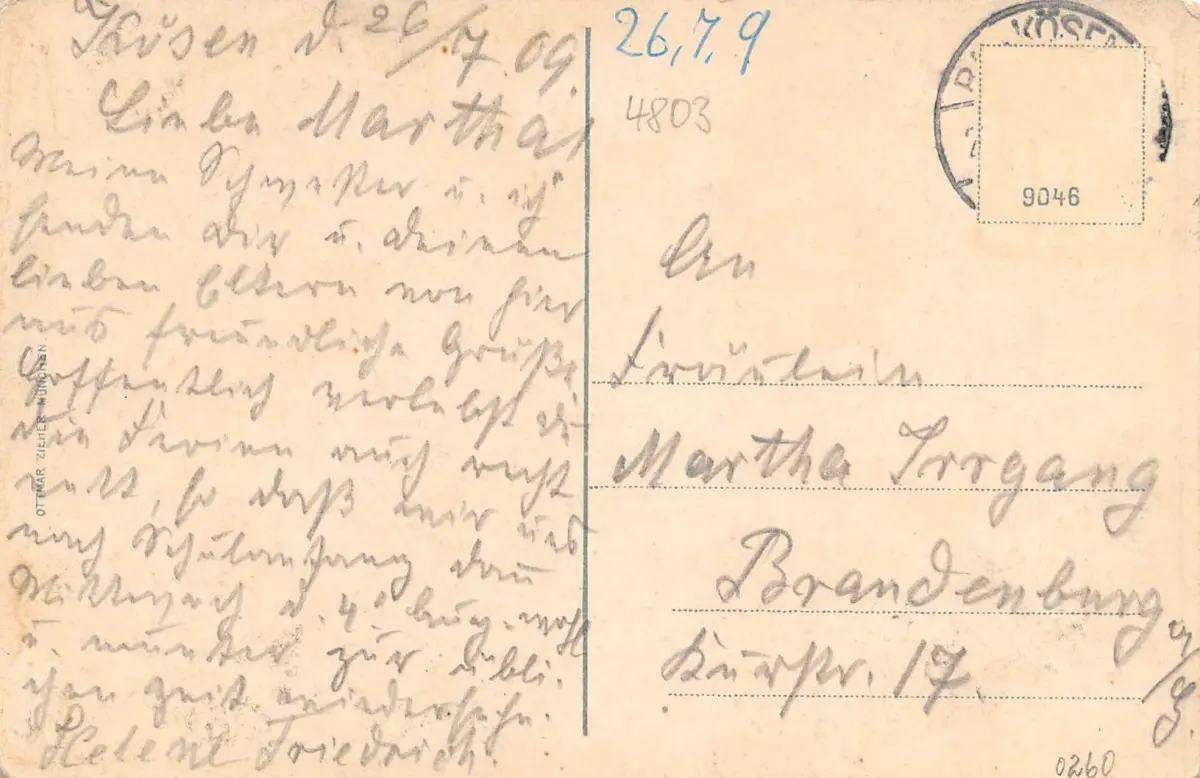 Kösen d. 26/7 09.
Liebe Martha!
Meine Schwester u. ich
senden Dir u. deinen
lieben Eltern von hier
aus freundliche Grüße.
Hoffentlich verlebst du
die Ferien auch recht
nett, so daß wir uns
nach Schulanfang dan
Mittwoch d. 4. Aug. wohl
u. munter zur übli-
chen Zeit wiedersehn.
Helene Friedrich.
OTTMAR ZIEHER MÜNCHEN
26.7.9
4803
KÖSEN
9046
An
Fräulein
Martha Irrgang
Brandenburg a/H.
Kurstr. 17.
0260